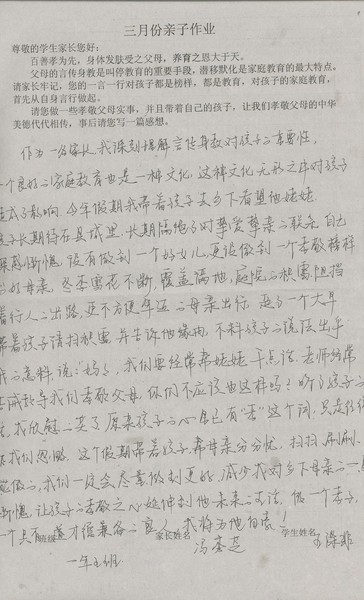 三月份亲子作业
尊敬的学生家长您好：
百善孝为先，身体发肤受之父母，养育之恩大于天。
父母的言传身教是叫停教育的重要手段，潜移默化是家庭教育的最大特点。
请家长牢记，您的一言一行对孩子都是榜样，都是教育，对孩子的家庭教育，
首先从自身言行做起。
请您做一些孝敬父母实事，并且带着自己的孩子，让我们孝敬父母的中华
美德代代相传，事后请您写一篇感想。
作为一名家长我深刻理解言传身教对孩子的重要性。
一个良好的家庭教育也是一种文化，这种文化无形之中对孩子
影响，今年假期我带着孩子去乡下看望他姥姥。
长期待在县城里，长期隔绝了对挚爱挚亲的联系，自己
惭愧，没有做到一个好女儿，更没做到一个孝敬榜样
的母亲。冬季雪花不断，覆盖满地，庭院的积雪阻挡
着行人的出路，更不方便年迈的母亲出行，赶了一个大早
带着孩子清扫积雪，并告诉他缘由，不料孩子的说法出乎
我的意料，说：“妈妈，我们要经常帮姥姥干点活，老师经常
教我们孝敬父母，你们不应该也这样吗？听了孩子的
我欣慰的笑了，原来孩子的心里已有“孝”这个词，只是往往
被我们忽略，这个假期带着孩子，帮母亲分分忧，扫扫、刷刷、
我们一定会尽量做到更好，减少我对乡下母亲的一点
惭愧，让孩子的孝敬之心延伸到他未来的生活，做一个孝子，
一个具有德才兼备的好人，我将为他自豪！
班级 一年五班 家长姓名 冯 学生姓名